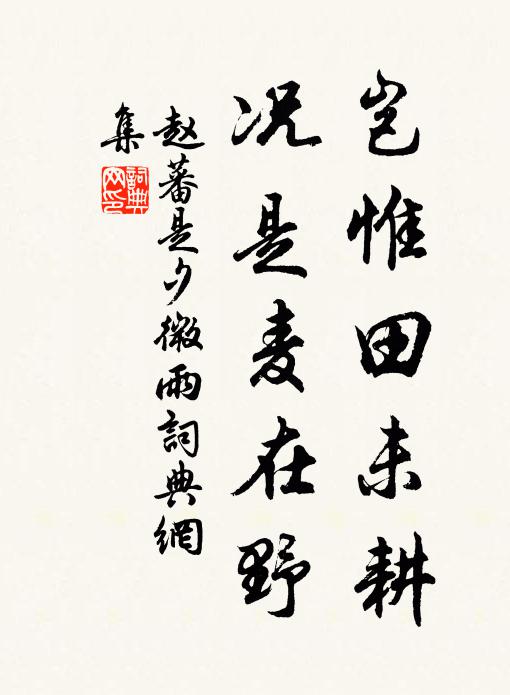 岂惟田未耕
况是麦在野
赵蕃是夕微雨詞典網
集
詞典
网印